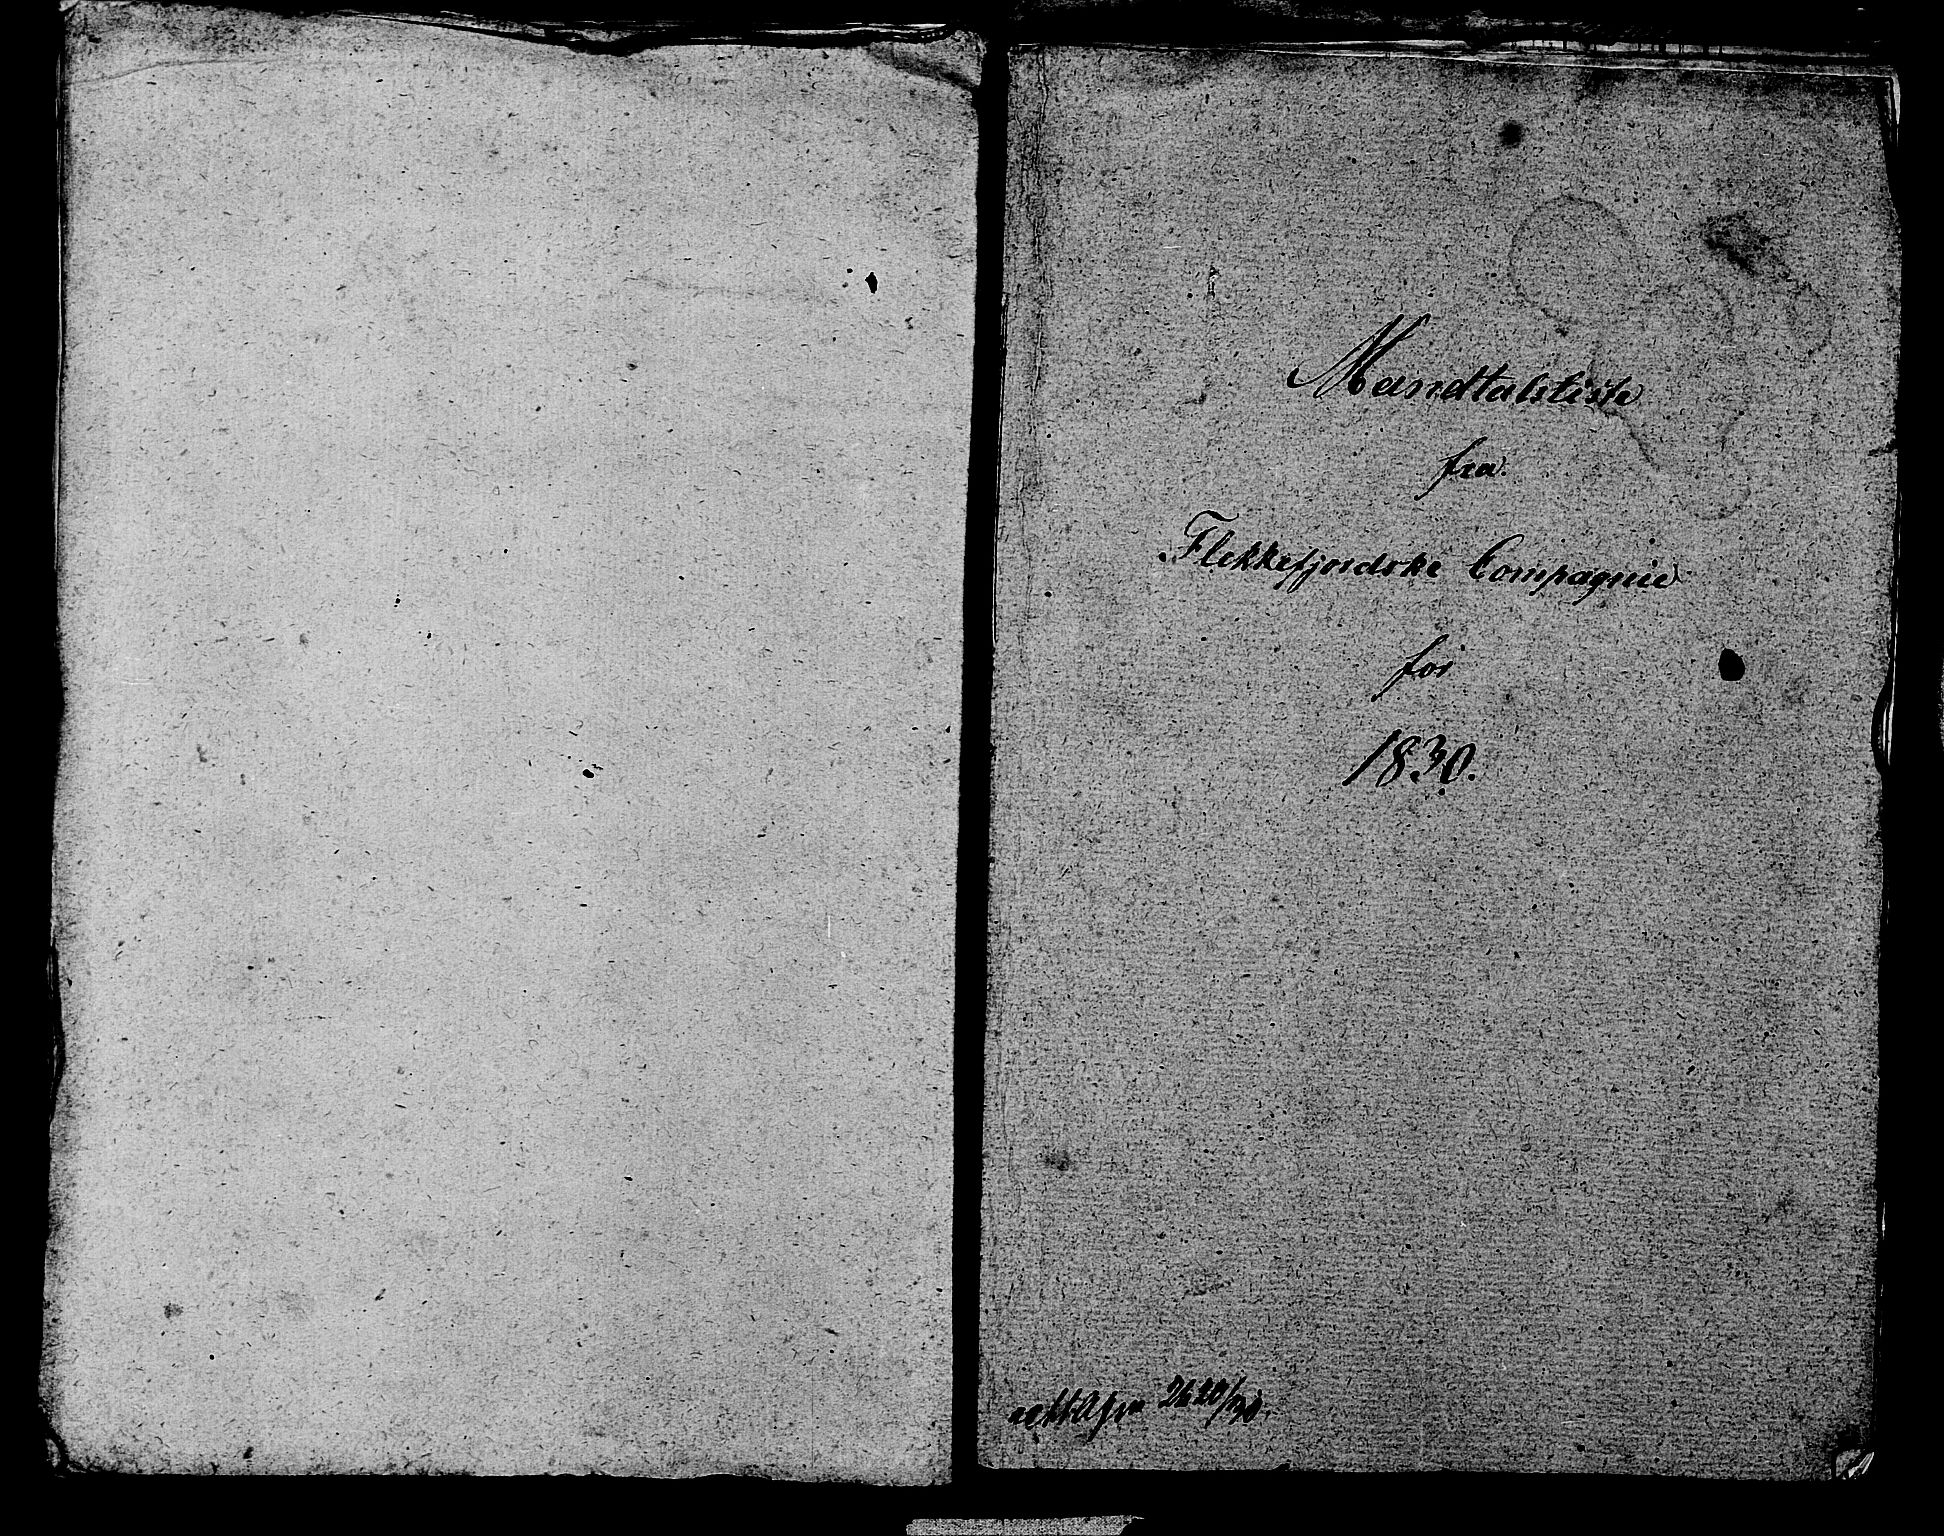 Mandtalsliste
fra
Flekkefjordske Compagnie
for
1830.